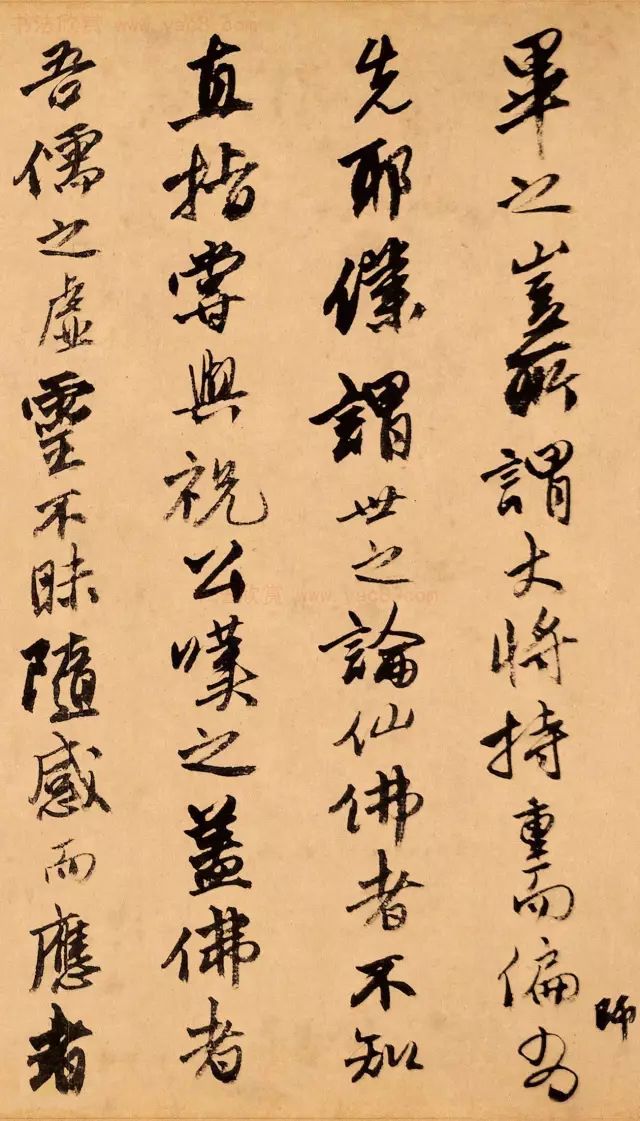 畢之豈所謂大將持重而偏為
師
先耶僕謂世之論仙佛者不知
直指嘗與祝公嘆之蓋佛者
吾儒之虛靈不昧隨感而應者
书法欣赏 www.yac8.com
书法欣赏 www.yac8.com